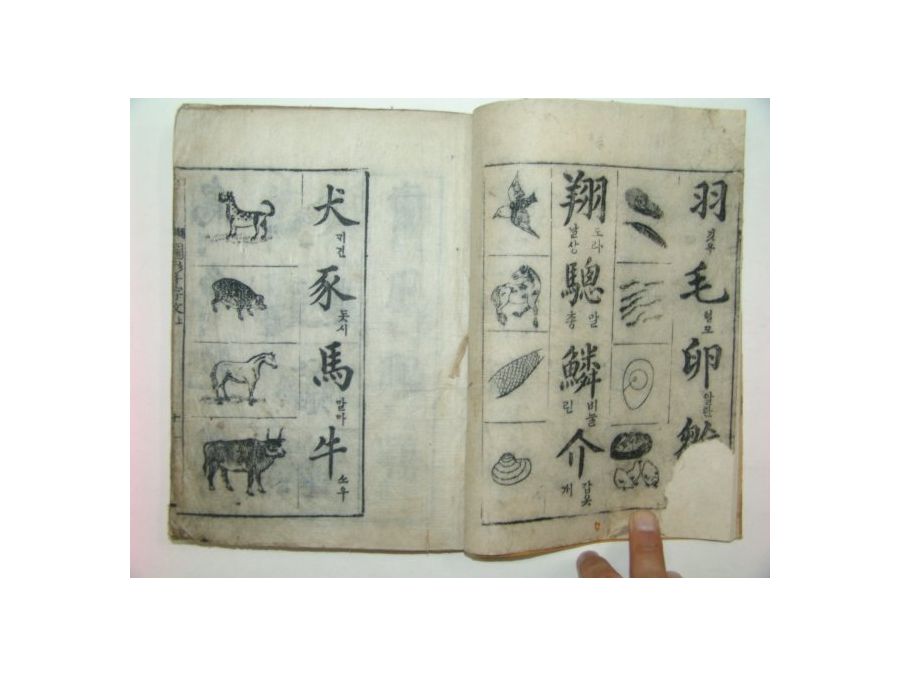 羽
깃우
毛
털모
卵
알란
翔
도라
날상
驄
말
총
鱗
비눌
린
介
갑옷
개
犬
개견
豕
돗시
馬
말마
牛
소우
千字文上